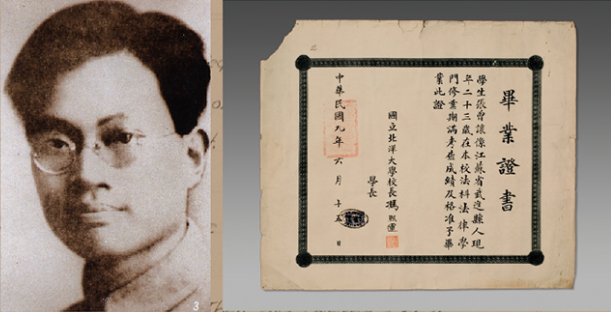 畢業證書
學生張曾讓係江蘇省武進縣人現
年二十三歲在本校法科法律學
門修業期滿考查成績及格准予畢
業此證
國立北洋大學校長馮熙運
學長
中華民國九年六月十五日
3